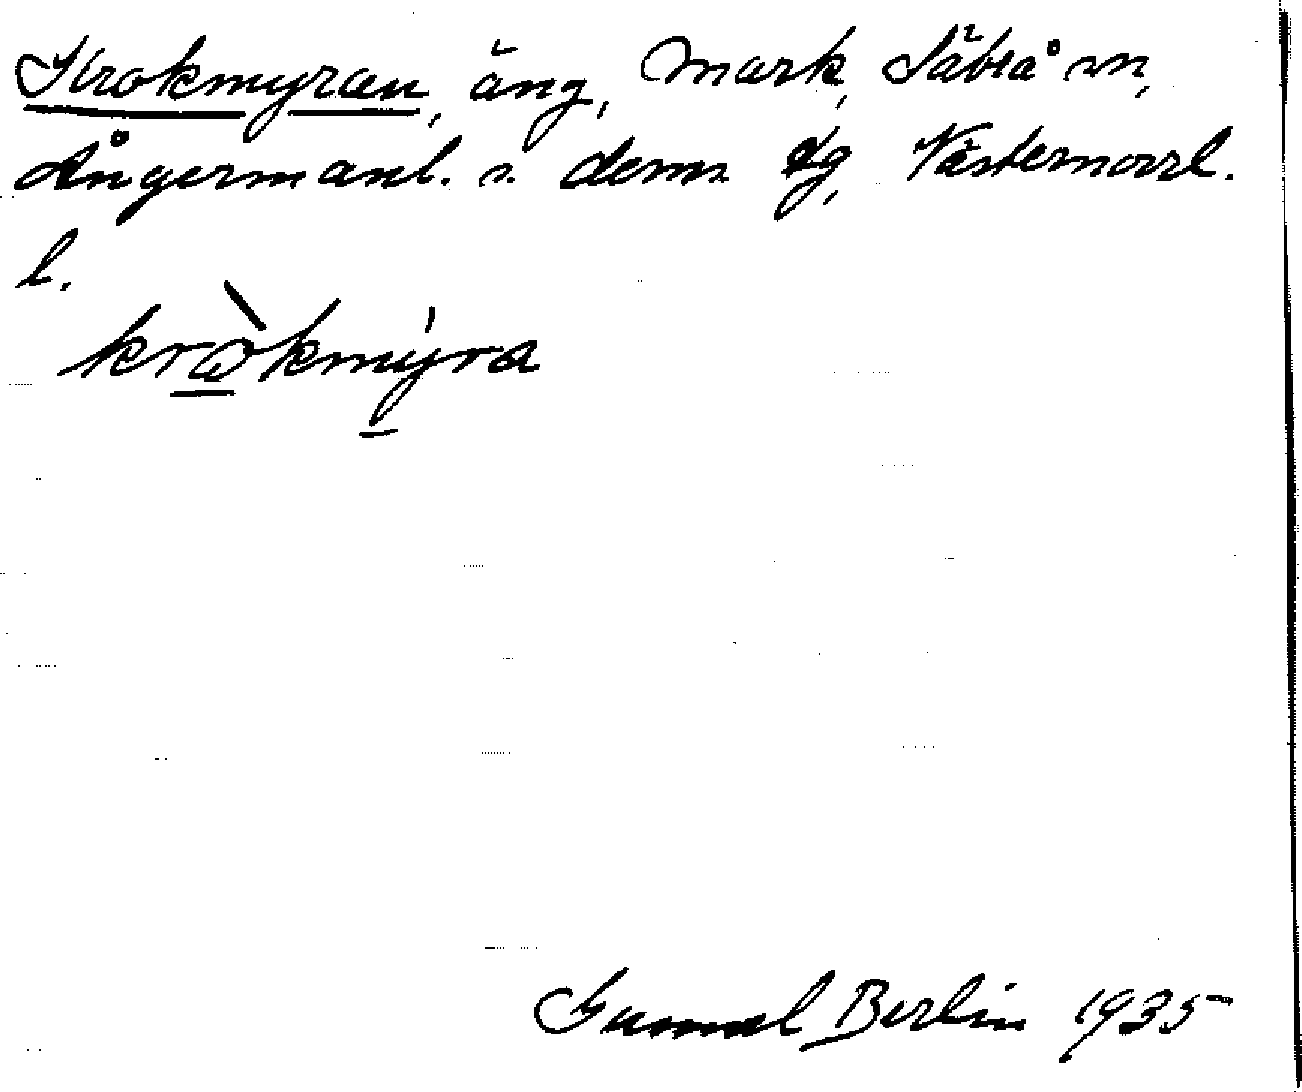 Krokmyran, äng, Mark, Säbrå sn,
Ångermanl. s. doms. dg, Västernorrl.
l.
krɷ̀kmýra
Gunnel Berlin 1935